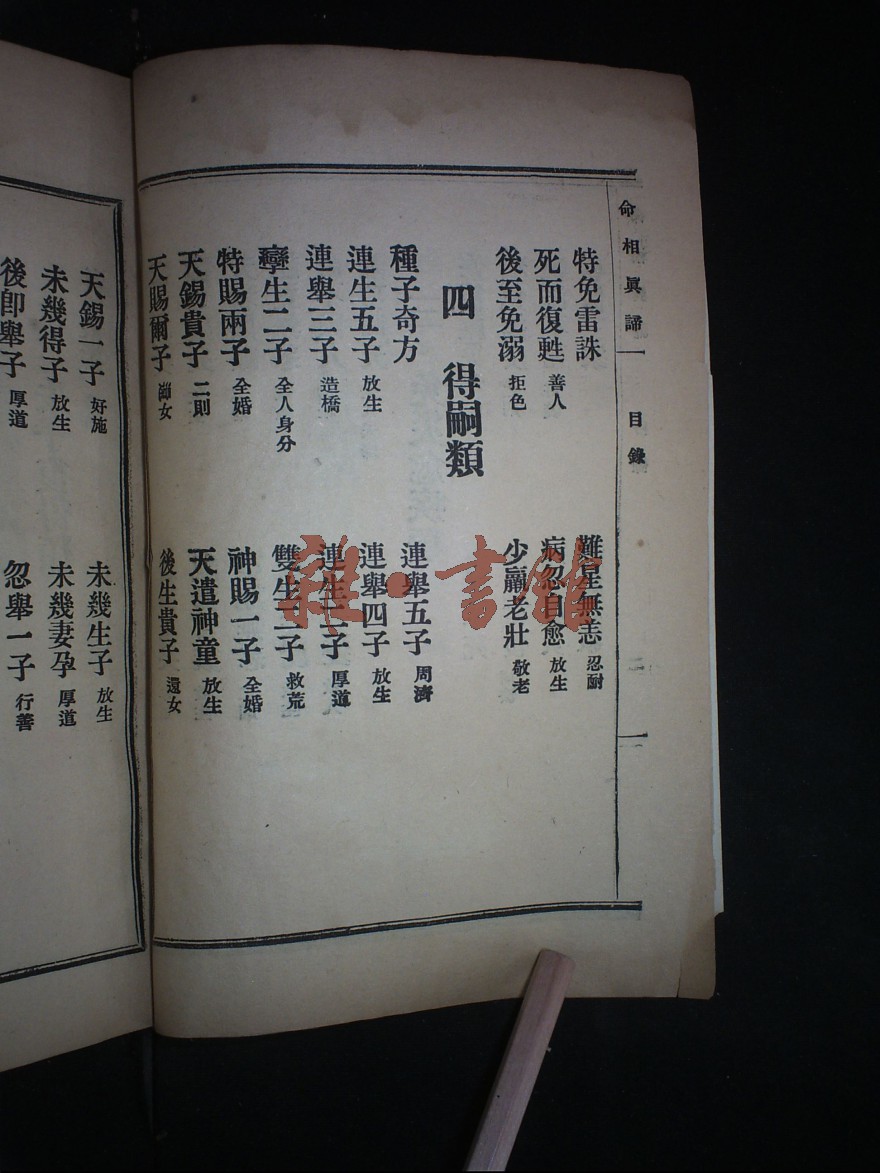 命相眞諦 目錄 二
特免雷誅 難星無恙 忍耐
死而復甦 善人 病忽自愈 放生
後至免溺 拒色 少贏老壯 敬老
四 得嗣類
種子奇方 連舉五子 周濟
連生五子 放生 連舉四子 放生
連舉三子 造橋 連生二子 厚道
孿生二子 全人身分 雙生二子 救荒
特賜兩子 全婚 神賜一子 全婚
天錫貴子 二則 天遣神童 放生
天賜爾子 後生貴子 還女
天錫一子 好施 未幾生子 放生
未幾得子 放生 未幾妻孕 厚道
後卽舉子 厚道 忽舉一子 行善
雜·書館